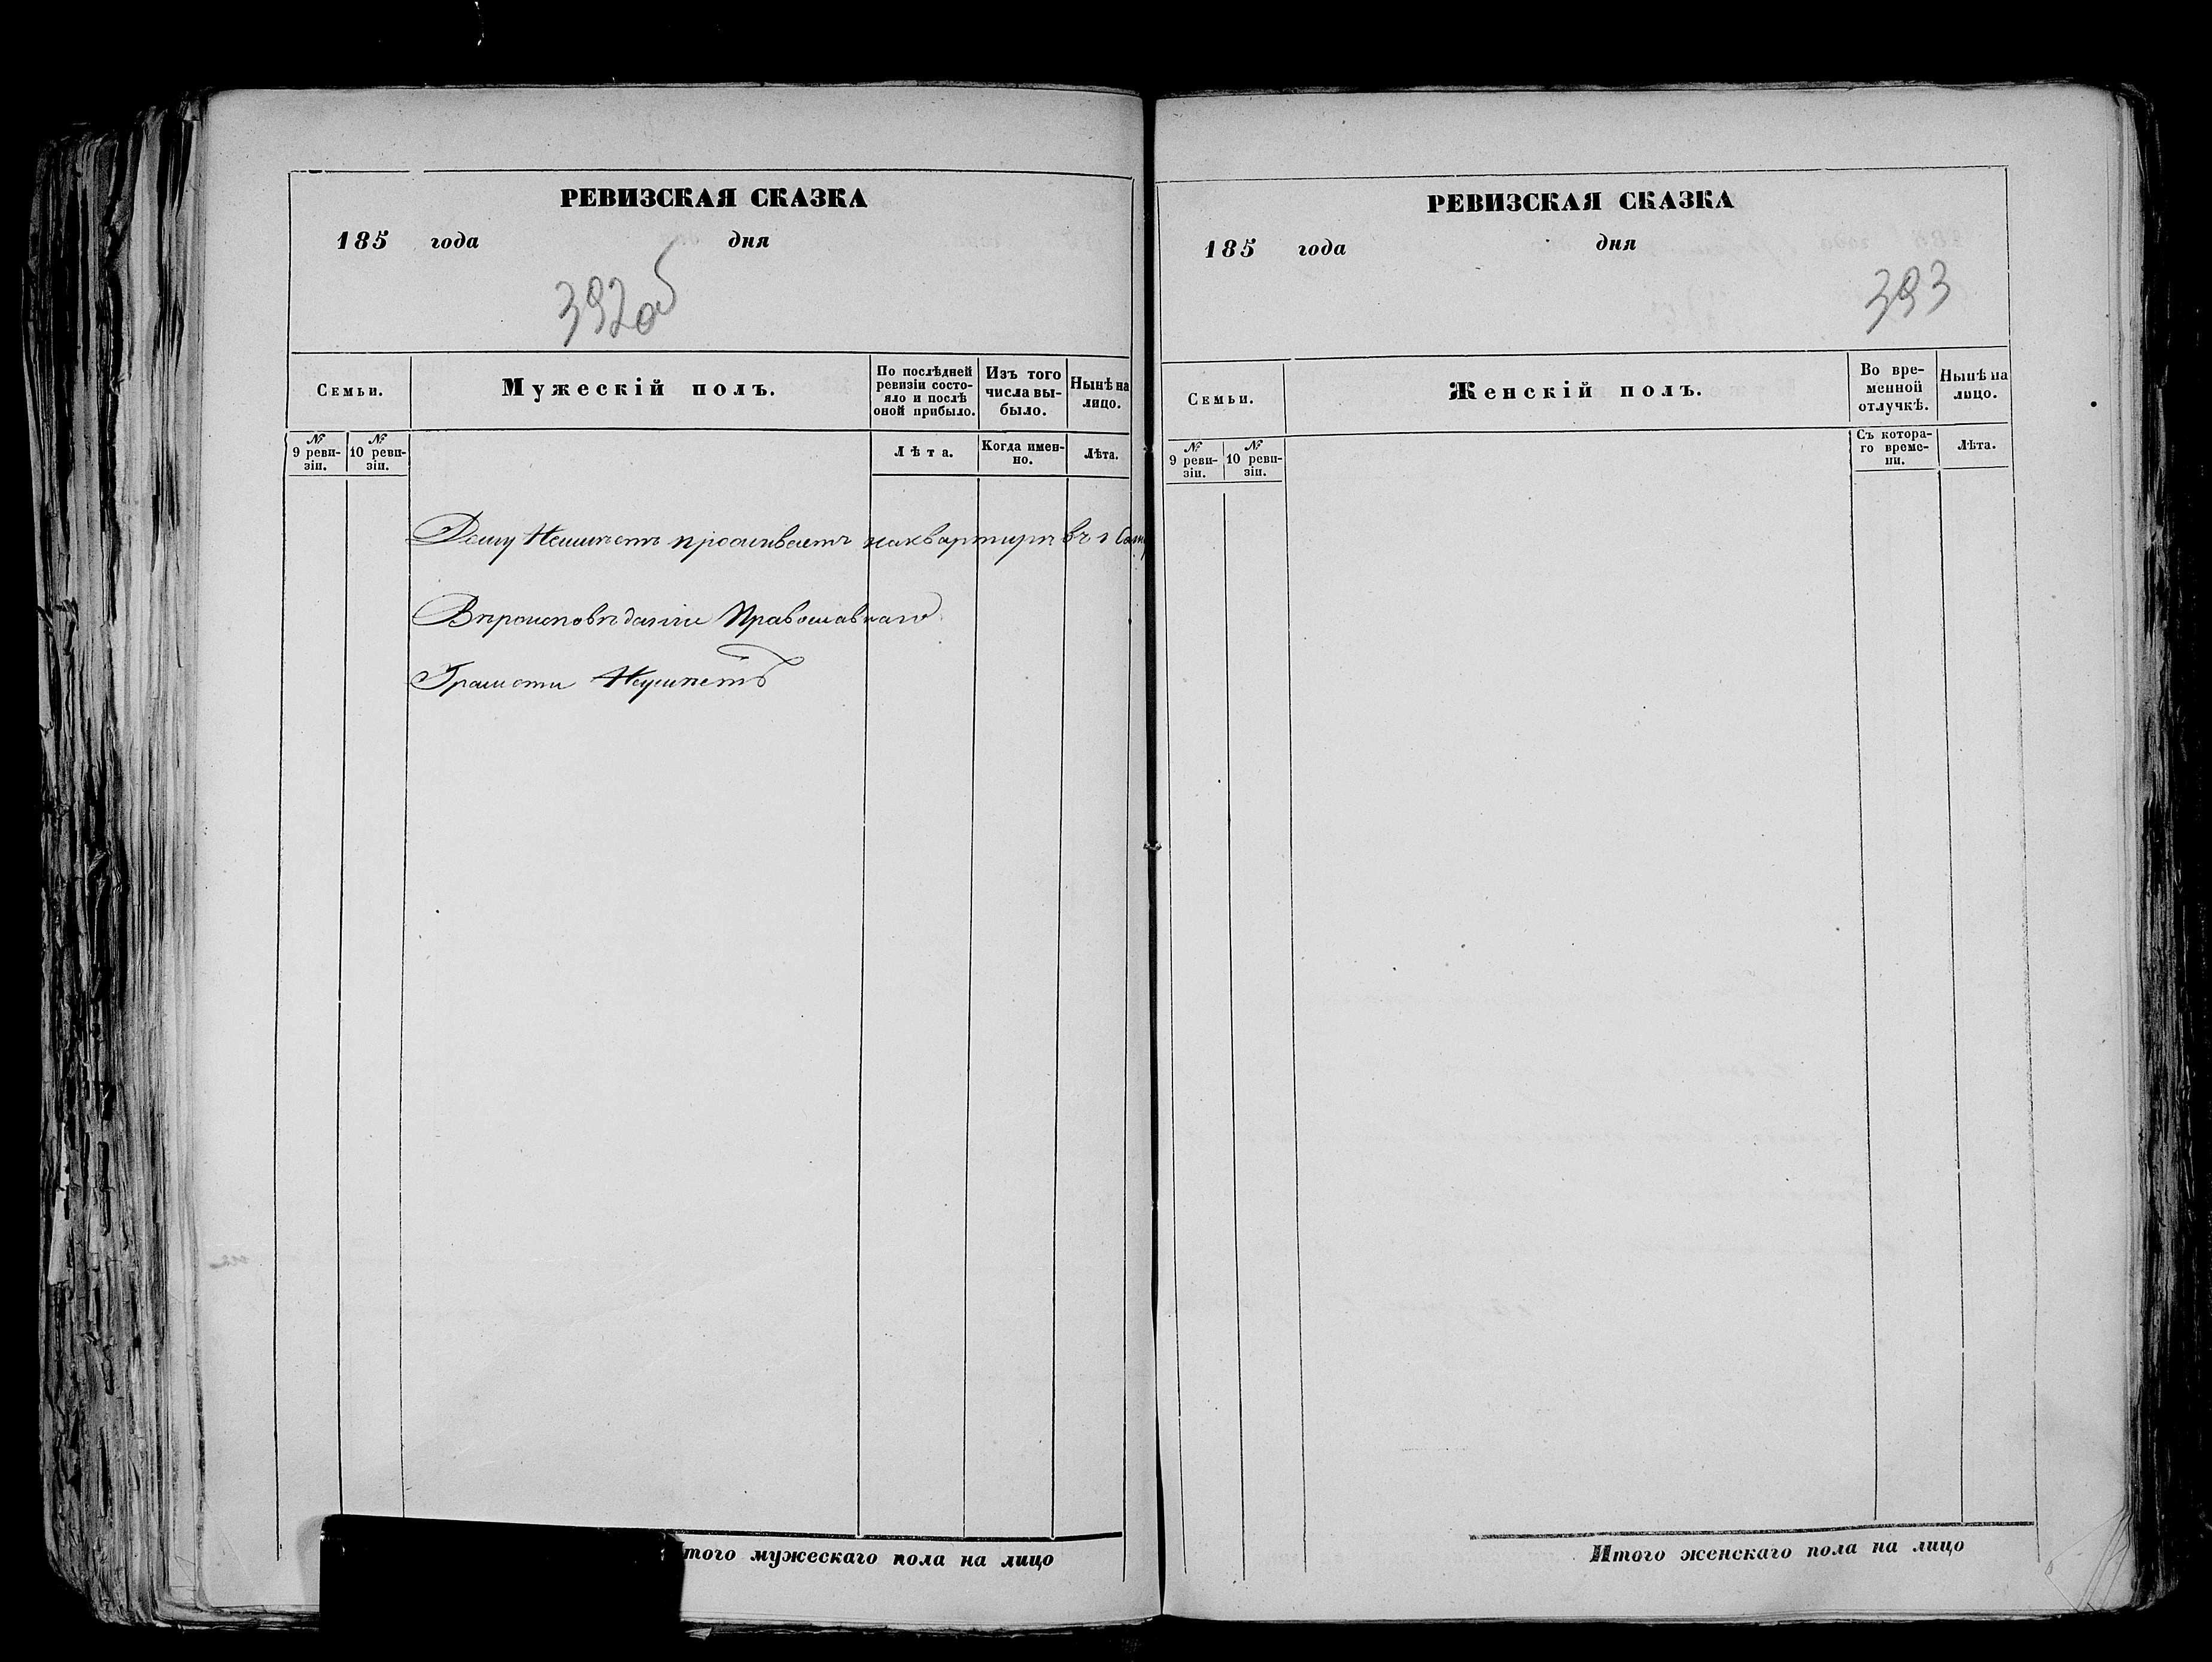 РЕВИЗСКАЯ СКАЗКА
185 года дня
392об
Семьи.
Мужескій полъ.
По послѣдней ревизіи состо-
яло и послѣ оной прибыло.
Изъ того числа вы-
было.
Нынѣ на лицо.
№ 9 реви-
зіи.
№ 10 реви-
зіи.
Лѣта.
Когда имен-
но.
Лѣта.
Дому Неимѣетъ проживаетъ наквартирѣ въ г
Вѣроисповѣданіи Православнаго
Грамоти Неумѣетъ
того мужескаго пола на лицо
РЕВИЗСКАЯ СКАЗКА
185 года дня
393
Семьи.
Женскій полъ.
Во вре-
менной
отлучкѣ.
Нынѣ на
лицо.
№ 9 реви-
зіи.
№ 10 реви-
зіи.
Съ котора-
го време-
ни.
Лѣта.
Итого женскаго пола на лицо